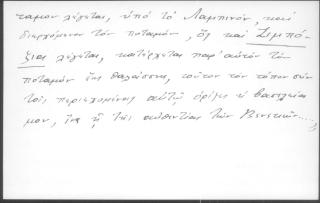 ταμον λέγεται, ὑπὸ τὸ Λαμπινόν, καὶ
διερχόμενον τὸν ποταμὸν, ὃς καὶ Σιμπό-
ξια λέγεται, κατέρχεται παρ' αὐτὸν τὸν
ποταμὸν ἕως θαλάσσης, τοῦτον τὸν τόπον σὺν
τοῖς περιεχομένοις αὐτῷ ὁρίζει ἡ βασιλεία
μου, ἵνα ᾖ τῆς αὐθεντίας τῶν Βενετικῶν....,